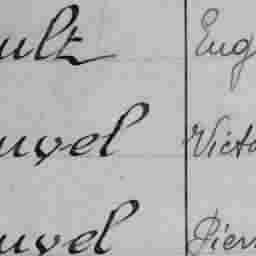 ult Eug
uvel Victo
uvel Pierr